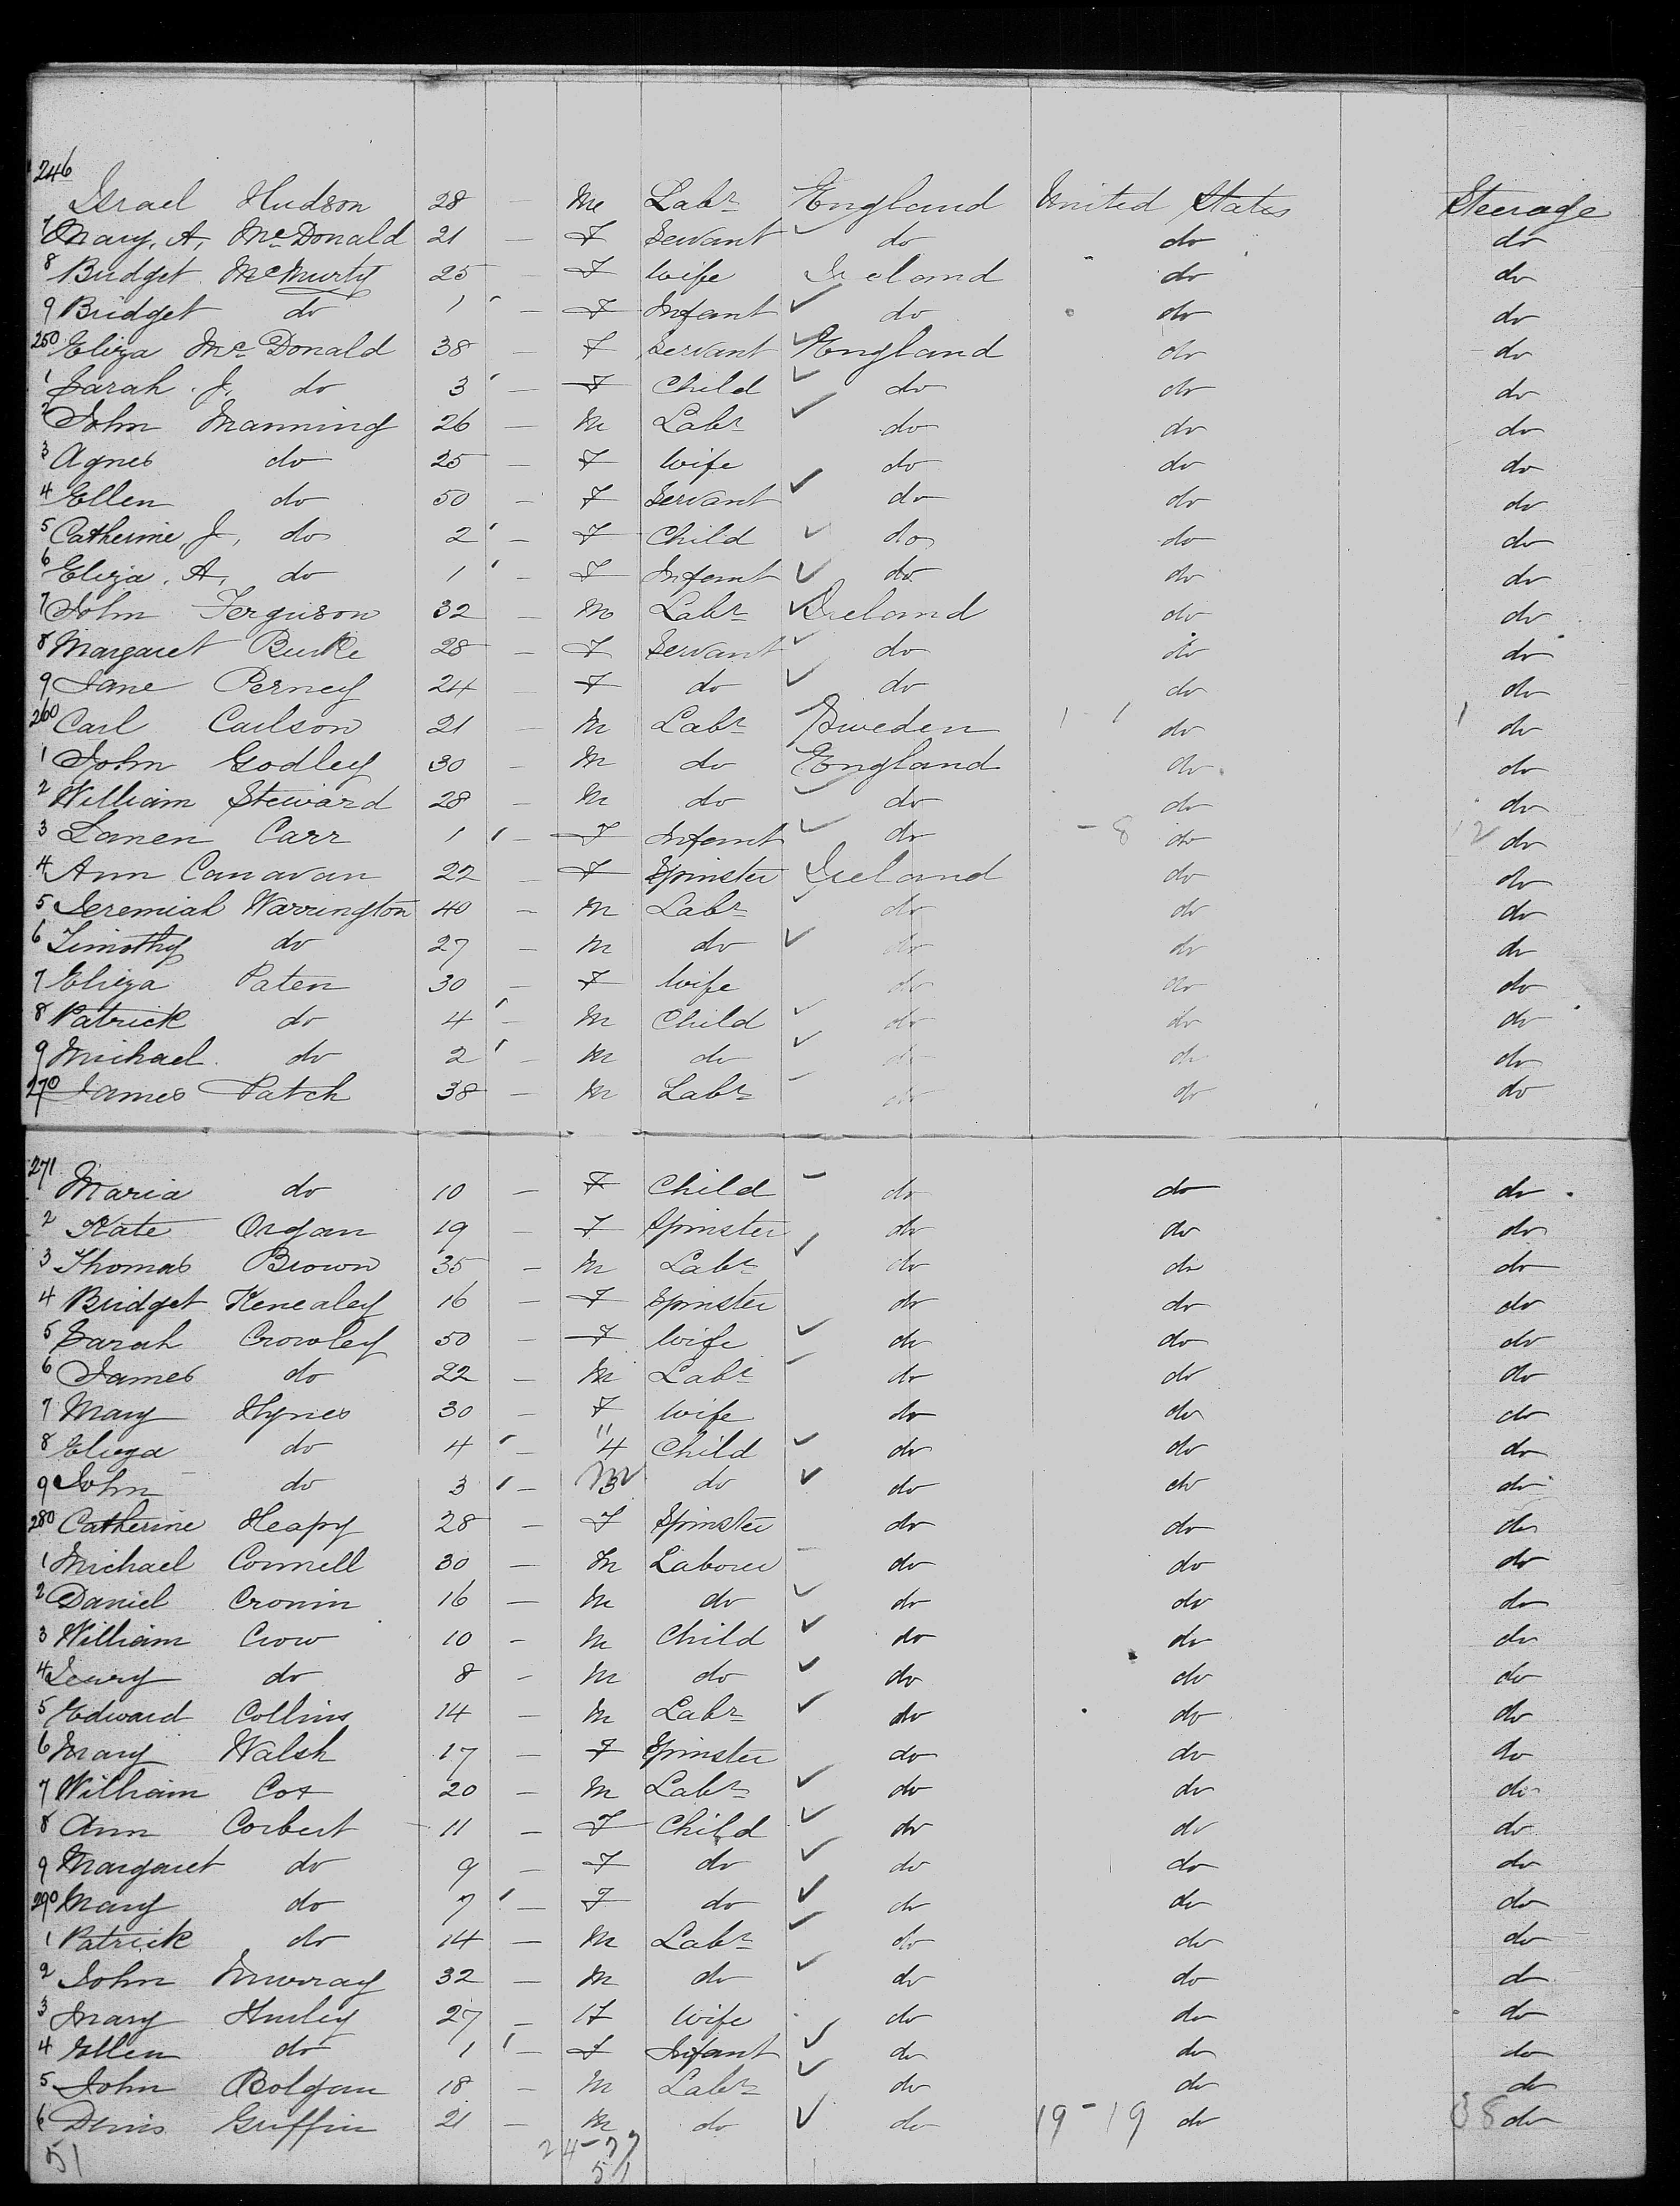 246 Israel Hudson 28 - M Labr England United States Steerage
7 Mary, A, McDonald 21 - F Servant do do do
8 Bridget McMurty 25 F Wife Ireland do do
9 Bridget do 1 - F Infant do do do
250 Eliza McDonald 38 - F Servant England do do
1 Sarah J. do 3 - F Child do do do
2 John Manning 26 - M Labr do do do
3 Agnes do 25 - F Wife do do do
4 Ellen do 50 - F Servant do do do
5 Catherine, J, do 2 - F Child do do do
6 Eliza, A, do 1 - F Infant do do do
7 John Ferguson 32 - M Labr Ireland do do
8 Margaret Burke 28 - F Servant do do do
9 Jane Perney 24 - F do do do do
260 Carl Carlson 21 - M Labr Sweden 1 - 1 do 1 do
1 John Godley 30 - M do England do do
2 William Steward 28 - M do do do do
3 Lanen Carr 1 - F Infant do - 8 do 12 do
4 Ann Canavan 22 - F Spinster Ireland do do
5 Jeremiah Warrington 40 - M Labr do do do
6 Timothy do 27 - M do do do do
7 Eliza Paten 30 - F Wife do do do
8 Patrick do 4 - M Child do do do
9 Michael do 2 - M do do do do
270 James Patch 38 - M Labr do do do
271 Maria do 10 - F Child do do do
2 Kate Organ 19 - F Spinster do do do
3 Thomas Brown 35 - M Labr do do do
4 Bridget Kenealey 16 - F Spinster do do do
5 Sarah Crowley 50 - F Wife do do do
6 James do 22 - M Labr do do do
7 Mary Hynes 30 - F Wife do do do
8 Eliza do 4 - " 4 Child do do do
9 John do 3 - M do do do do
280 Catherine Heapy 28 - F Spinster do do do
1 Michael Connell 30 - M Laborer do do do
2 Daniel Cronin 16 - M do do do do
3 William Crow 10 - M Child do do do
4 do 8 - M do do do do
5 Edward Collins 14 - M Labr do do do
6 Mary Walsh 17 - F Spinster do do do
7 William Cox 20 - M Labr do do do
8 Ann Corbert 11 - F Child do do do
9 Margaret do 9 - F do do do do
290 Mary do 7 - F do do do do
1 Patrick do 14 - M Labr do do do
2 John Murray 32 - M do do do do
3 Mary Hurley 27 - F Wife do do do
4 Ellen do 1 - F Infant do do do
5 John Bolgan 18 - M Labr do do do
6 Denis Griffin 21 - M do do 19 - 19 do 38 do
51 24-27
51